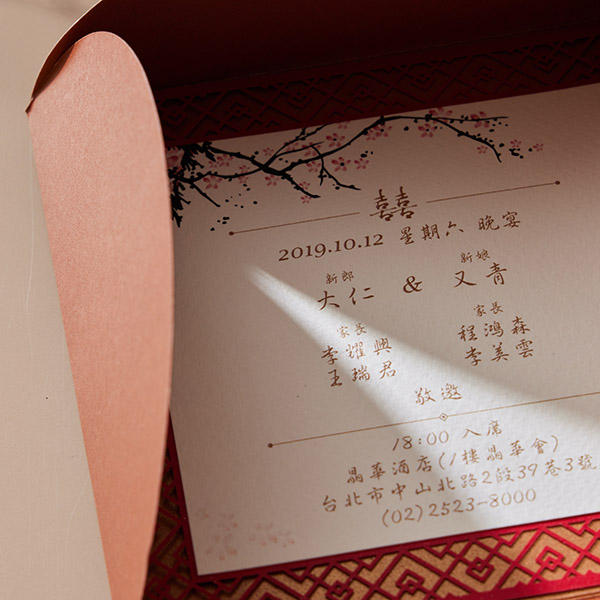 囍
2019.10.12 星期六 晚宴
新郎 新娘
大仁 & 又青
家長 家長
李耀興 程鴻森
王瑞君 李美雲
敬邀
18:00 入席
晶華酒店(1樓晶華會)
台北市中山北路2段39巷3號
(02)2523-8000